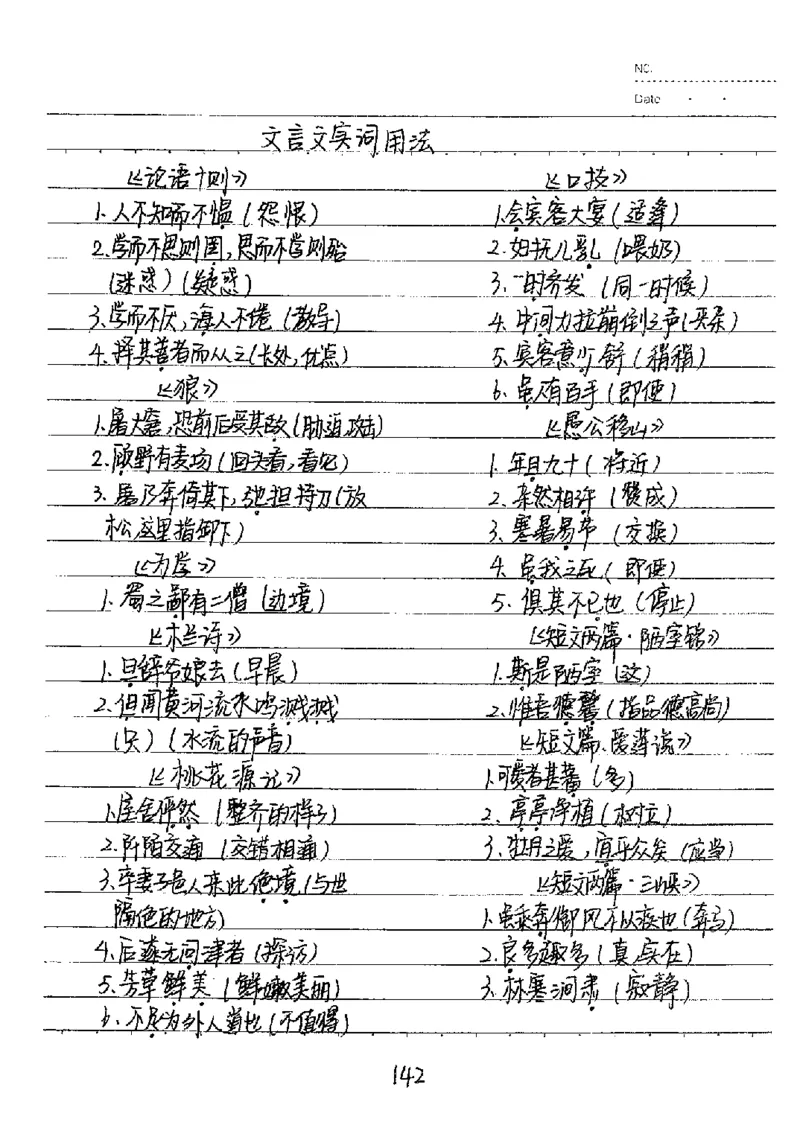 NO.
Date
文言文实词用法
《论语十则》
1. 人不知而不愠(怨恨)
2. 学而不思则罔,思而不学则殆
(迷惑)(疑惑)
3. 学而不厌,诲人不倦(教导)
4. 择其善者而从之(长处,优点)
《狼》
1. 屠大窘,恐前后受其敌(胁迫,攻击)
2. 顾野有麦场(回头看,看见)
3. 屠乃奔倚其下,弛担持刀(放
松,这里指卸下)
《为学》
1. 蜀之鄙有二僧(边境)
《木兰诗》
1. 旦辞爷娘去(早晨)
2. 但闻黄河流水鸣溅溅
(只)(水流的声音)
《桃花源记》
1. 屋舍俨然(整齐的样子)
2. 阡陌交通(交错相通)
3. 率妻子邑人来此绝境(与世
隔绝的地方)
4. 后遂无问津者(探访)
5. 芳草鲜美(鲜嫩美丽)
6. 不足为外人道也(不值得)
《口技》
1. 会宾客大宴(适逢)
2. 妇抚儿乳(喂奶)
3. 一时齐发(同一时候)
4. 中间力拉崩倒之声(夹杂)
5. 宾客意少舒(稍稍)
6. 虽人有百手(即使)
《愚公移山》
1. 年且九十(将近)
2. 杂然相许(赞成)
3. 寒暑易节(交换)
4. 虽我之死(即使)
5. 惧其不已也(停止)
《短文两篇·陋室铭》
1. 斯是陋室(这)
2. 惟吾德馨(指品德高尚)
《短文篇、爱莲说》
1. 可爱者甚蕃(多)
2. 亭亭净植(树立)
3. 牡丹之爱,宜乎众矣(应当)
《短文两篇·三峡》
1. 虽乘奔御风不以疾也(奔马)
2. 良多趣多(真,实在)
3. 林寒涧肃(寂静)
142